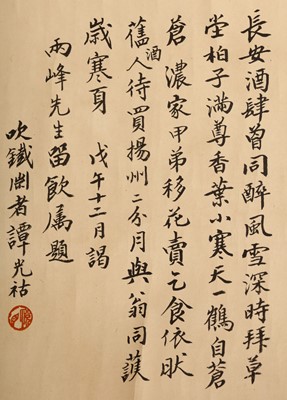 長安酒肆曾同醉風雪深時拜草
堂柏子滿尊香葉小寒天一鶴自蒼
蒼 濃家甲弟移花賣乞食依肰
舊酒人待買揚州二分月與翁同護
歲寒身 戊午十二月謁
兩峰先生留飲属題
吹鐵者譚光祜